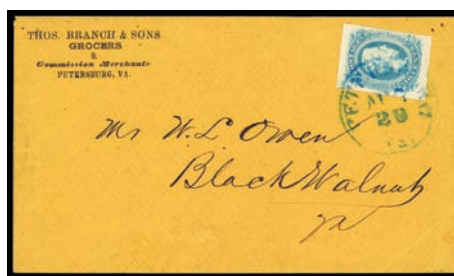 THOS. BRANCH & SONS
GROCERS
&
Commission Merchants
PETERSBURG, VA.
29
Mr W. L Owen
Black Walnut
Va